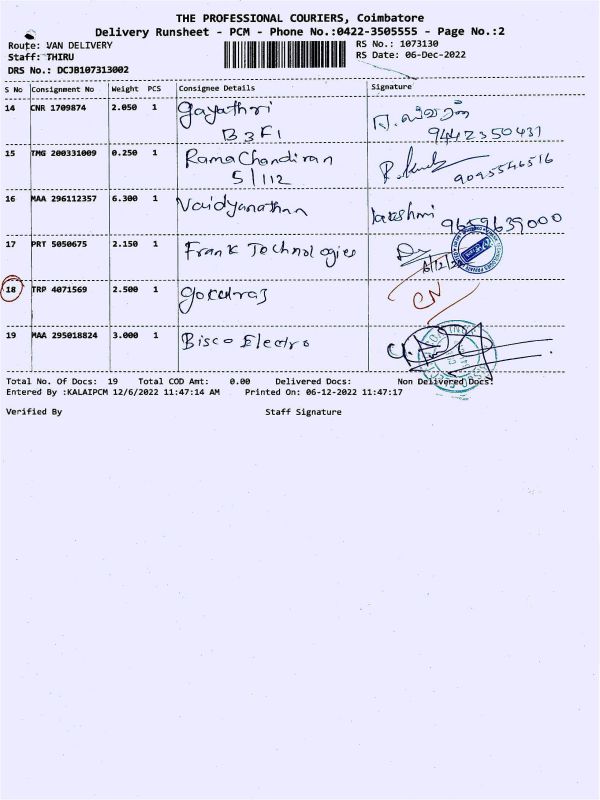 THE PROFESSIONAL COURIERS, Coimbatore
Delivery Runsheet - PCM - Phone No.:0422-3505555 - Page No.:2
Route: VAN DELIVERY
RS No.: 1073130
Staff: THIRU
RS Date: 06-Dec-2022
DRS No.: DCJB107313002
S No Consignment No Weight PCS Consignee Details Signature
14 CNR 1709874 2.050 1 Gayathri
B3F1 9442350431
15 TMG 200331009 0.250 1 Rama Chandiran
5/112 9095546516
16 MAA 296112357 6.300 1 Vaidyanathan lakeshmi 9659639000
17 PRT 5050675 2.150 1 Frank Technologies
18 TRP 4071569 2.500 1 CN
19 MAA 295018824 3.000 1 Bisco Electro
Total No. Of Docs: 19 Total COD Amt: 0.00 Delivered Docs: Non Delivered Docs:
Entered By :KALAIPCM 12/6/2022 11:47:14 AM Printed On: 06-12-2022 11:47:17
Verified By Staff Signature